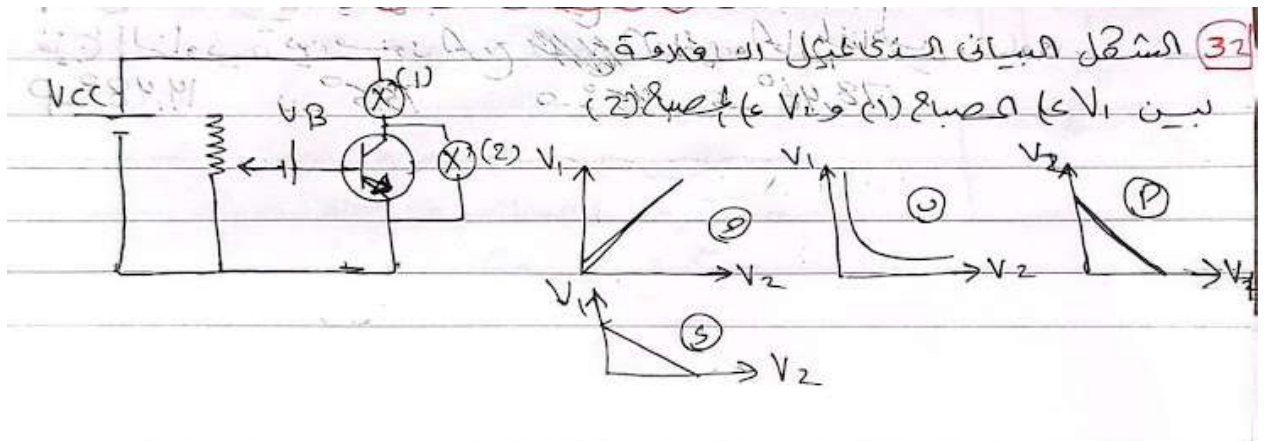 32 الشكل البيانى الذى يمثل العلاقة
بين V1 على المصباح (1) و V2 على المصباح (2)
VCC
VB
(1)
(2)
V2
V1
ب
V1
V2
ج
V1
V2
د
V1
V2